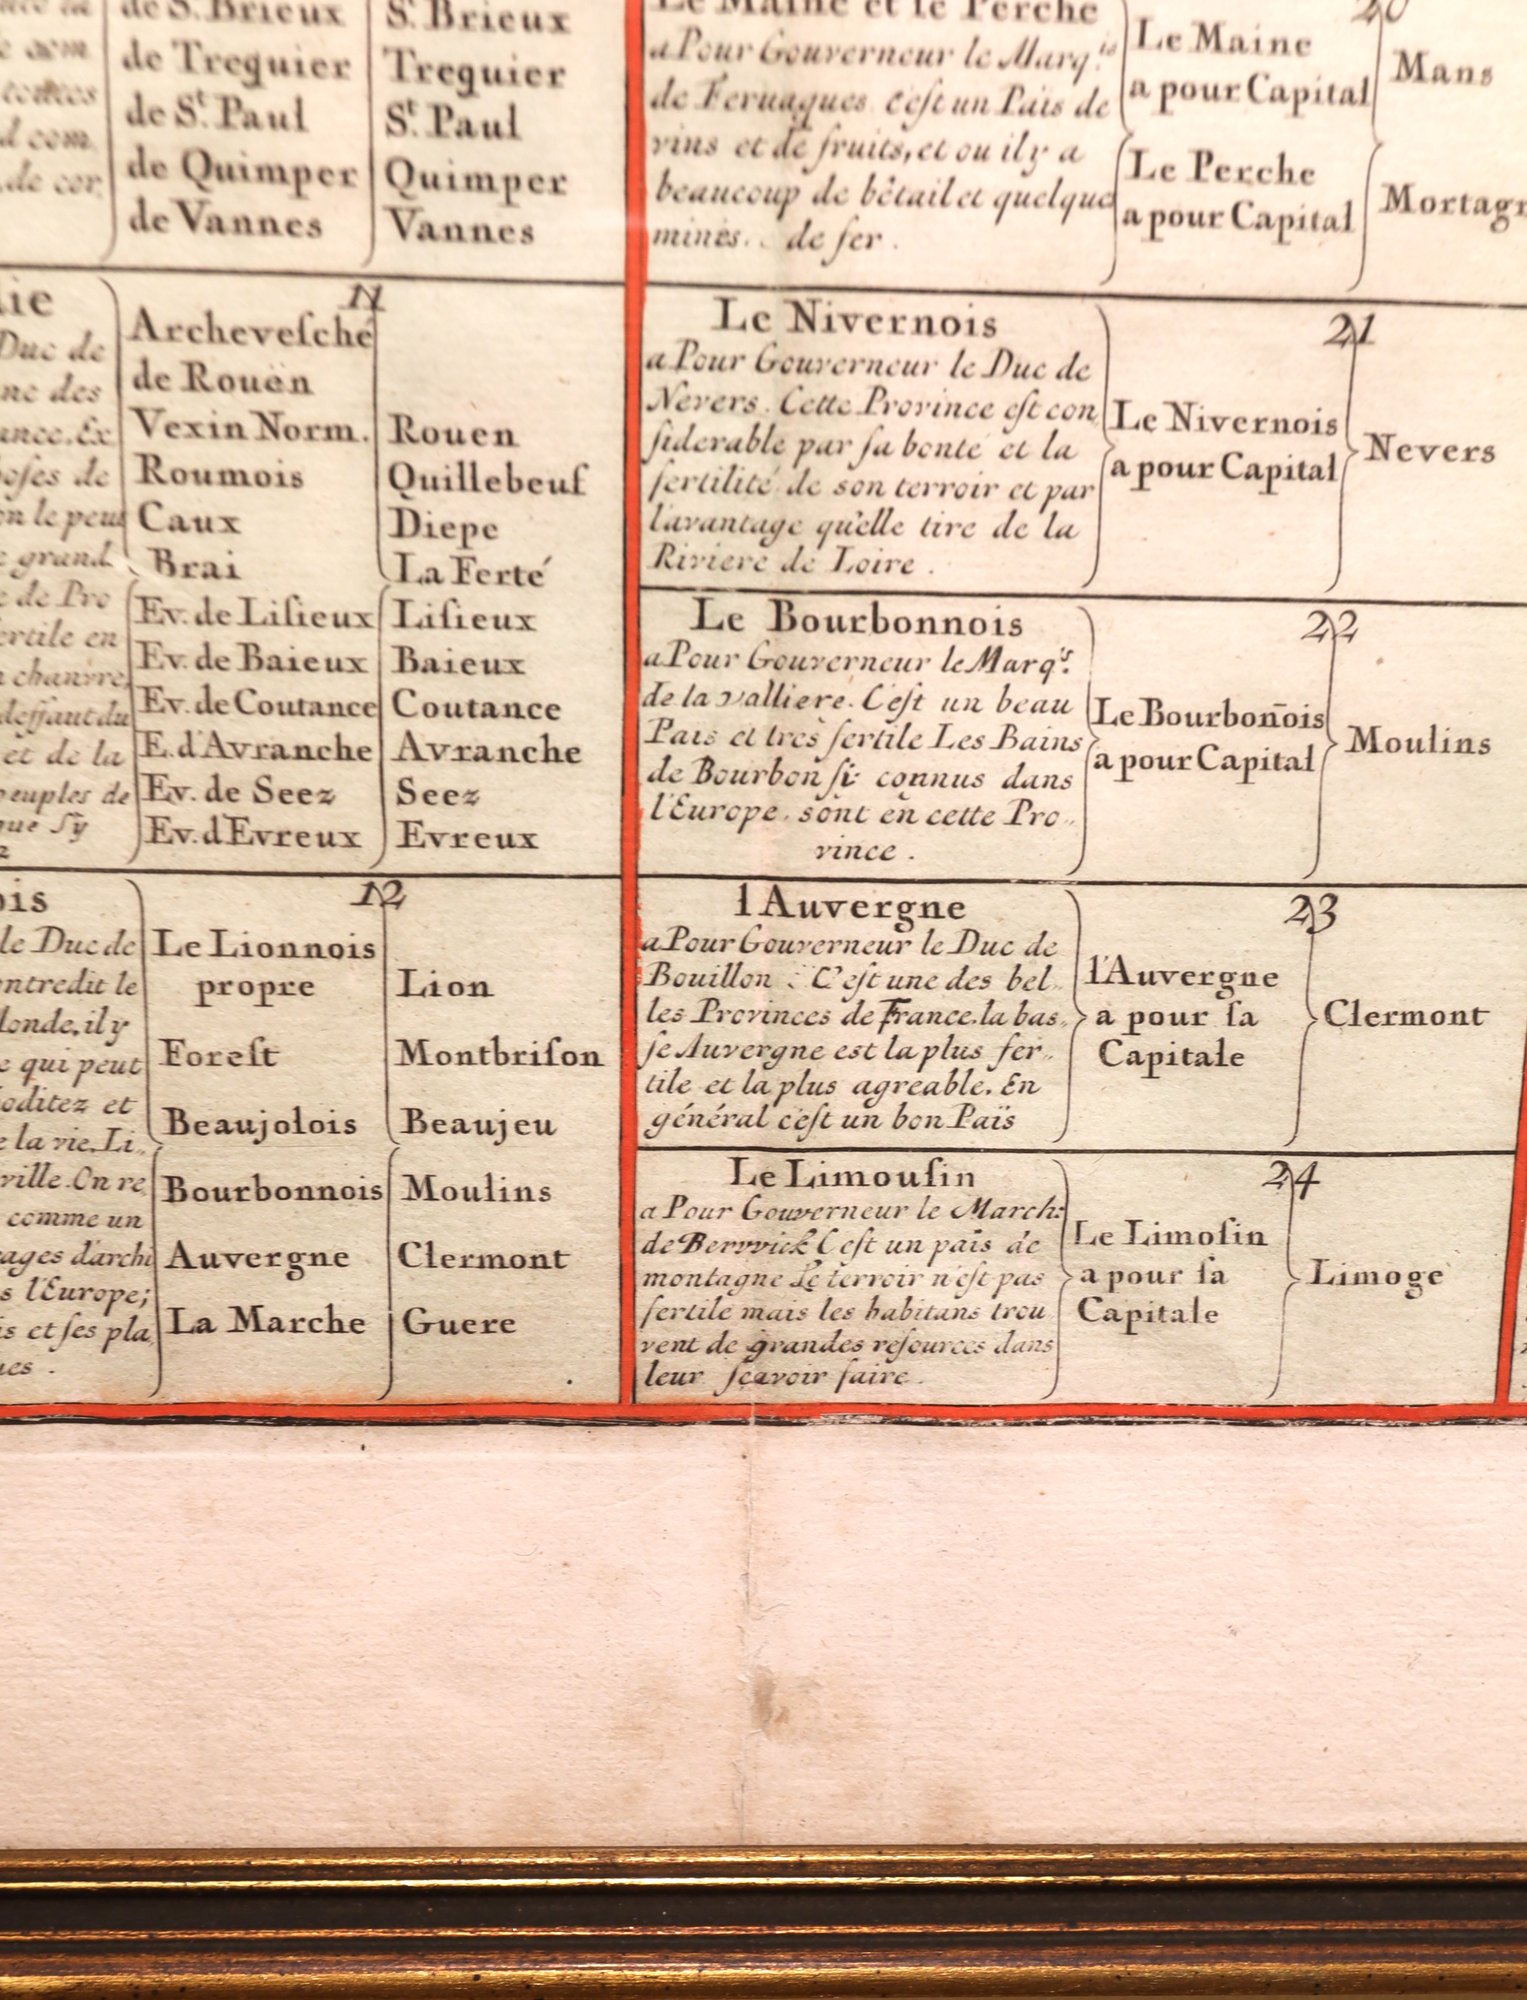 de S.t Brieux
de Treguier
de S.t Paul
de Quimper
de Vannes
S.t Brieux
Treguier
S.t Paul
Quimper
Vannes
d com.
de cor
Le Maine et le Perche
a Pour Gouverneur le Marq.is
de Fervaques c'eſt un Païs de
vins et de fruits, et ou il y a
beaucoup de bêtail et quelque
mines.. de fer.
20
Le Maine
a pour Capital
Le Perche
a pour Capital
Mans
Mortagn
die
Duc de
ne des
ance. Ex
oſes de
on le peut
e grand
e de Pro
ertile en
chanvre,
deffaut du
et de la
peuples de
que ſ'y
11
Archeveſché
de Rouën
Vexin Norm.
Roumois
Caux
Brai
Ev. de Liſieux
Ev. de Baieux
Ev. de Coutance
E. d'Avranche
Ev. de Seez
Ev. d'Evreux
Rouen
Quillebeuf
Diepe
La Ferté
Liſieux
Baieux
Coutance
Avranche
Seez
Evreux
Le Nivernois
a Pour Gouverneur le Duc de
Nevers. Cette Province eſt con
ſiderable par ſa bonté et la
fertilité de son terroir et par
l'avantage qu'elle tire de la
Riviere de Loire.
21
Le Nivernois
a pour Capital
Nevers
Le Bourbonnois
a Pour Gouverneur le Marq.is
de la Valliere. C'eſt un beau
Païs et très fertile Les Bains
de Bourbon ſi connus dans
l'Europe, sont en cette Pro..
vince.
22
Le Bourbon̄ois
a pour Capital
Moulins
ois
le Duc de
ontredit le
londe, il y
e qui peut
oditez et
e la vie. Li..
ville. On re
comme un
ages d'archi
s l'Europe;
is et ſes pla
ues.
12
Le Lionnois
propre
Foreſt
Beaujolois
Bourbonnois
Auvergne
La Marche
Lion
Montbriſon
Beaujeu
Moulins
Clermont
Guere
l'Auvergne
a Pour Gouverneur le Duc de
Bouillon. C'eſt une des bel..
les Provinces de France. la bas..
ſe Auvergne est la plus fer..
tile et la plus agreable. En
général c'eſt un bon Païs
23
l'Auvergne
a pour ſa
Capitale
Clermont
Le Limouſin
a Pour Gouverneur le March:
de Bervvick C'eſt un païs de
montagne Le terroir n'eſt pas
fertile mais les habitans trou
vent de grandes reſources dans
leur ſcavoir faire.
24
Le Limoſin
a pour ſa
Capitale
Limoge